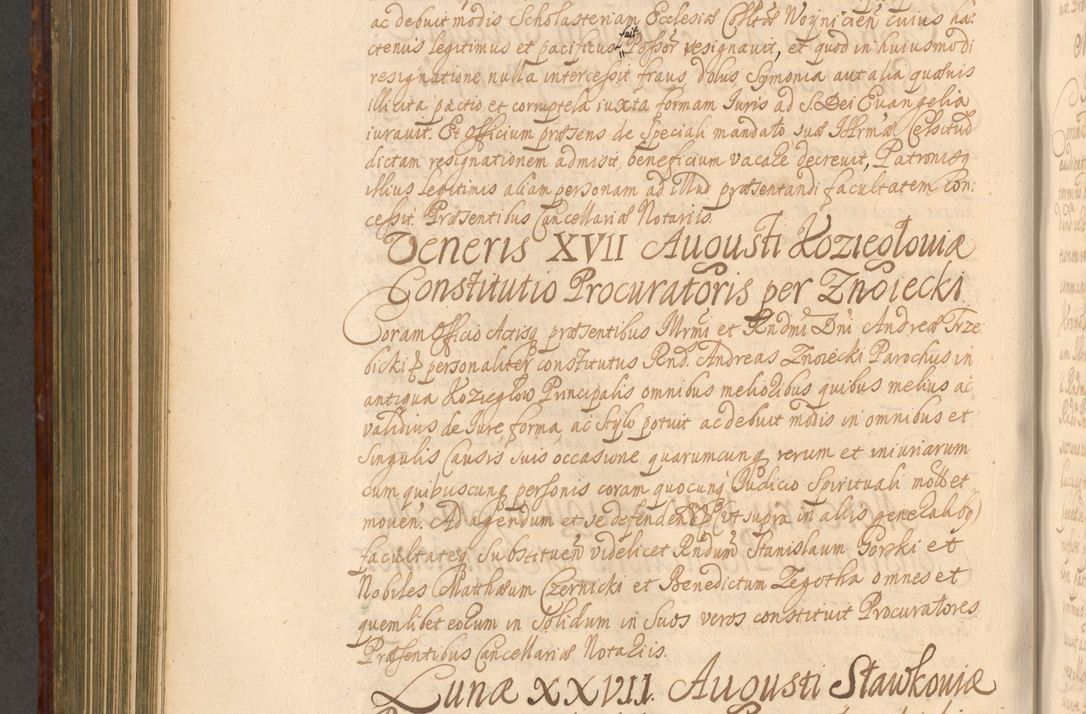 ac debuit modis Scholasteriam Ecclesiæ Collæ Woynicien cuius ha:
ctenus legitimus et pacificus fuit Possor resignavit, et quod in huiusmodi
resignatione nulla intercessit fraus dolus Symonia aut alia quævis
illicita pactio et corruptela iuxta formam Iuris ad S. Dei Evangelia
iuravit. Et Officium præsens de speciali mandato suæ Illrmæ Celsitud
dictam resignationem admisit, beneficium vacare decrevit, Patronisq
illius legitimis aliam personam ad illud præsentandi facultatem con:
cessit. Præsentibus Cancellariæ Notariis.
Veneris XVII Augusti Koziegloviæ
Constitutio Procuratoris per Znoiecki
Coram Officio Actisq præsentibus Illrmi et Rndmi Dni Andreæ Trze
bicki & personaliter constitutus Rnd. Andreas Znoiecki Parochus in
antiqua Kozieglow Principalis omnibus melioribus quibus melius ac
validius de Iure forma, ac stylo potuit ac debuit modis in omnibus et
singulis Causis suis occasione quarumcunq rerum et iniuriarum
cum quibuscunq personis coram quocunq Iudicio Spirituali motis et
moven. Ad agendum et se defenden (ut supra in aliis generalibq)
facultateq substituen videlicet Rndum Stanislaum Gorski et
Nobiles Matthæum Czernicki et Benedictum Zegotha omnes et
quemlibet eorum in solidum in suos veros constituit Procuratores
Præsentibus Cancellariæ Notariis.
Lunæ XXVII Augusti Slawkoviæ